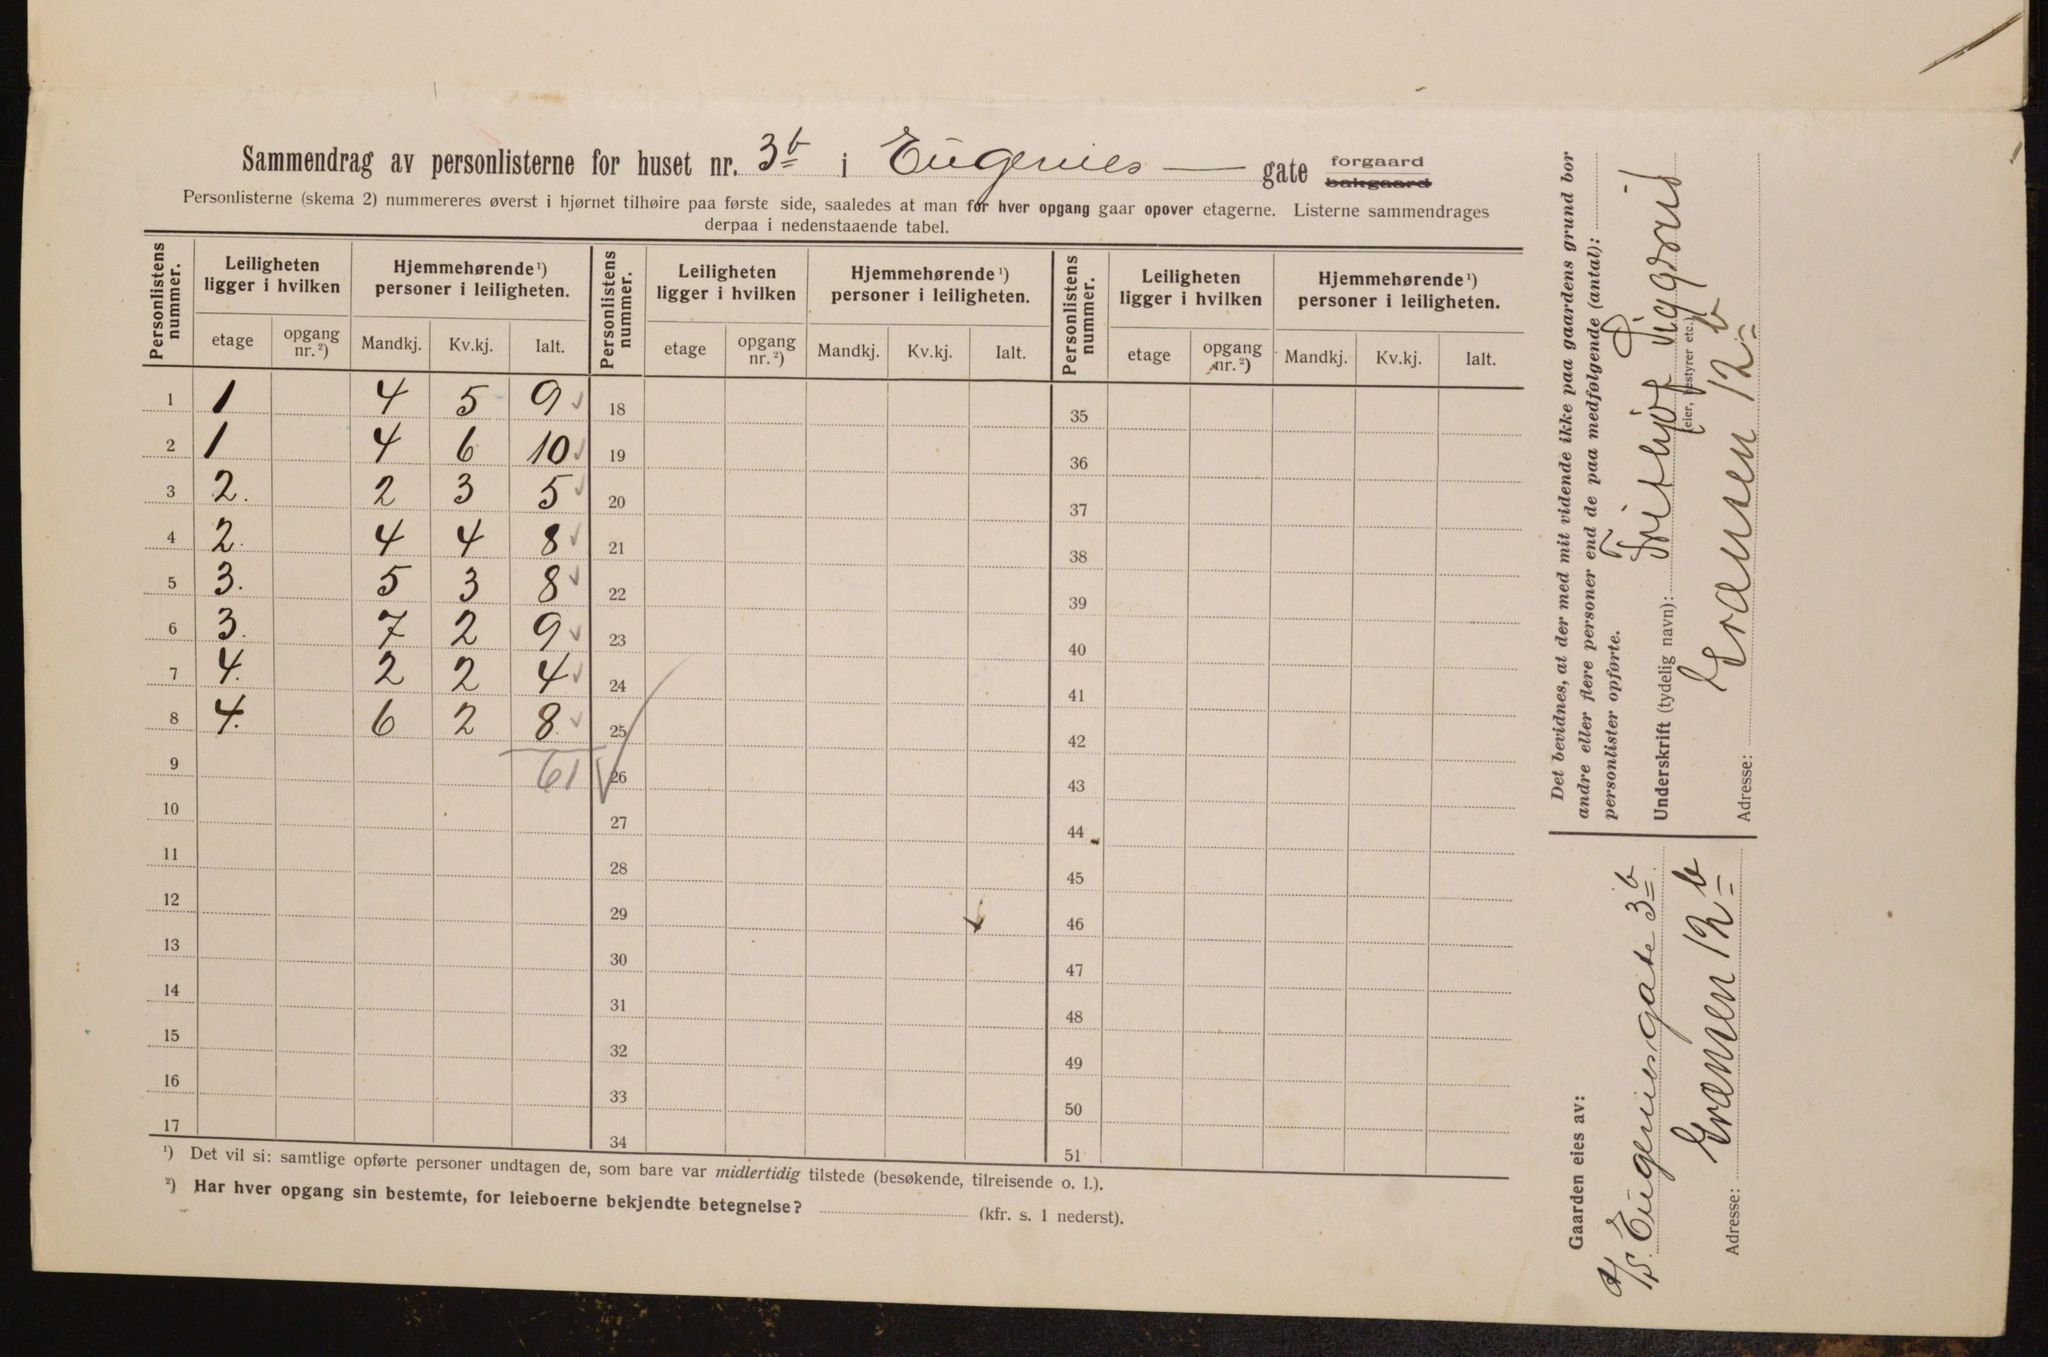 Sammendrag av personlisterne for huset nr. 3b i Eugenies — gate forgaard bakgaard
Personlisterne (skema 2) nummereres øverst i hjørnet tilhøire paa første side, saaledes at man for hver opgang gaar opover etagerne. Listerne sammendrages
derpaa i nedenstaaende tabel.
Personlistens nummer. Leiligheten ligger i hvilken Hjemmehørende ¹) personer i leiligheten. Personlistens nummer. Leiligheten ligger i hvilken Hjemmehørende ¹) personer i leiligheten. Personlistens nummer. Leiligheten ligger i hvilken Hjemmehørende ¹) personer i leiligheten.
etage opgang nr. ²) Mandkj. Kv.kj. Ialt. etage opgang nr. ²) Mandkj. Kv.kj. Ialt. etage opgang nr. ²) Mandkj. Kv.kj. Ialt.
1 1 4 5 9 ✓ 18 35
2 1 4 6 10 ✓ 19 36
3 2. 2 3 5 ✓ 20 37
4 2. 4 4 8 ✓ 21 38
5 3. 5 3 8 ✓ 22 39
6 3. 7 2 9 ✓ 23 40
7 4. 2 2 4 ✓ 24 41
8 4. 6 2 8 ✓ 25 42
9 61 ✓ 26 43
10 27 44
11 28 45
12 29 46
13 30 47
14 31 48
15 32 49
16 33 50
17 34 51
¹) Det vil si: samtlige opførte personer undtagen de, som bare var midlertidig tilstede (besøkende, tilreisende o. l.).
²) Har hver opgang sin bestemte, for leieboerne bekjendte betegnelse? (kfr. s. 1 nederst).
Det bevidnes, at der med mit vidende ikke paa gaardens grund bor
andre eller flere personer end de paa medfølgende (antal):
personlister opførte.
Underskrift (tydelig navn): Frithjof
(eier, bestyrer etc.)
Adresse: Grænsen 12 b
Gaarden eies av:
A/S. Eugeniesgate 3 b
Adresse: Grænsen 12 b